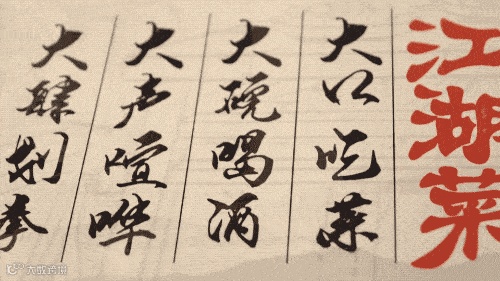 江湖菜
大口吃菜
大碗喝酒
大声喧哗
大肆划拳